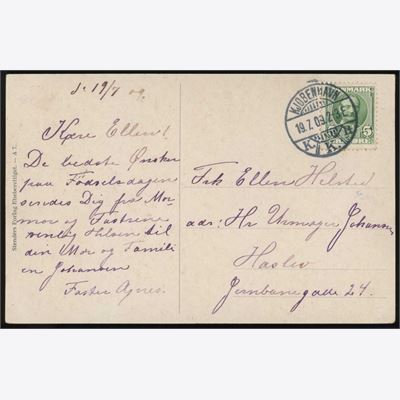 d. 19/7 09.
Kære Ellen!
De bedste Ønsker
paa Födselsdagen
sendes Dig fra Mor-
mor og Tastrine
venlig Hilsen til
din Mor og Famili
en Johansen
Faster Agnes.
Frk Ellen Helsted
adr: Hr Urmager Johansen
Haslev
Jernbanegade 24.
KJØBENHAVN
19.7.09.
K.
DANMARK
5
ØRE
Stenders Forlag Eneberettiget.